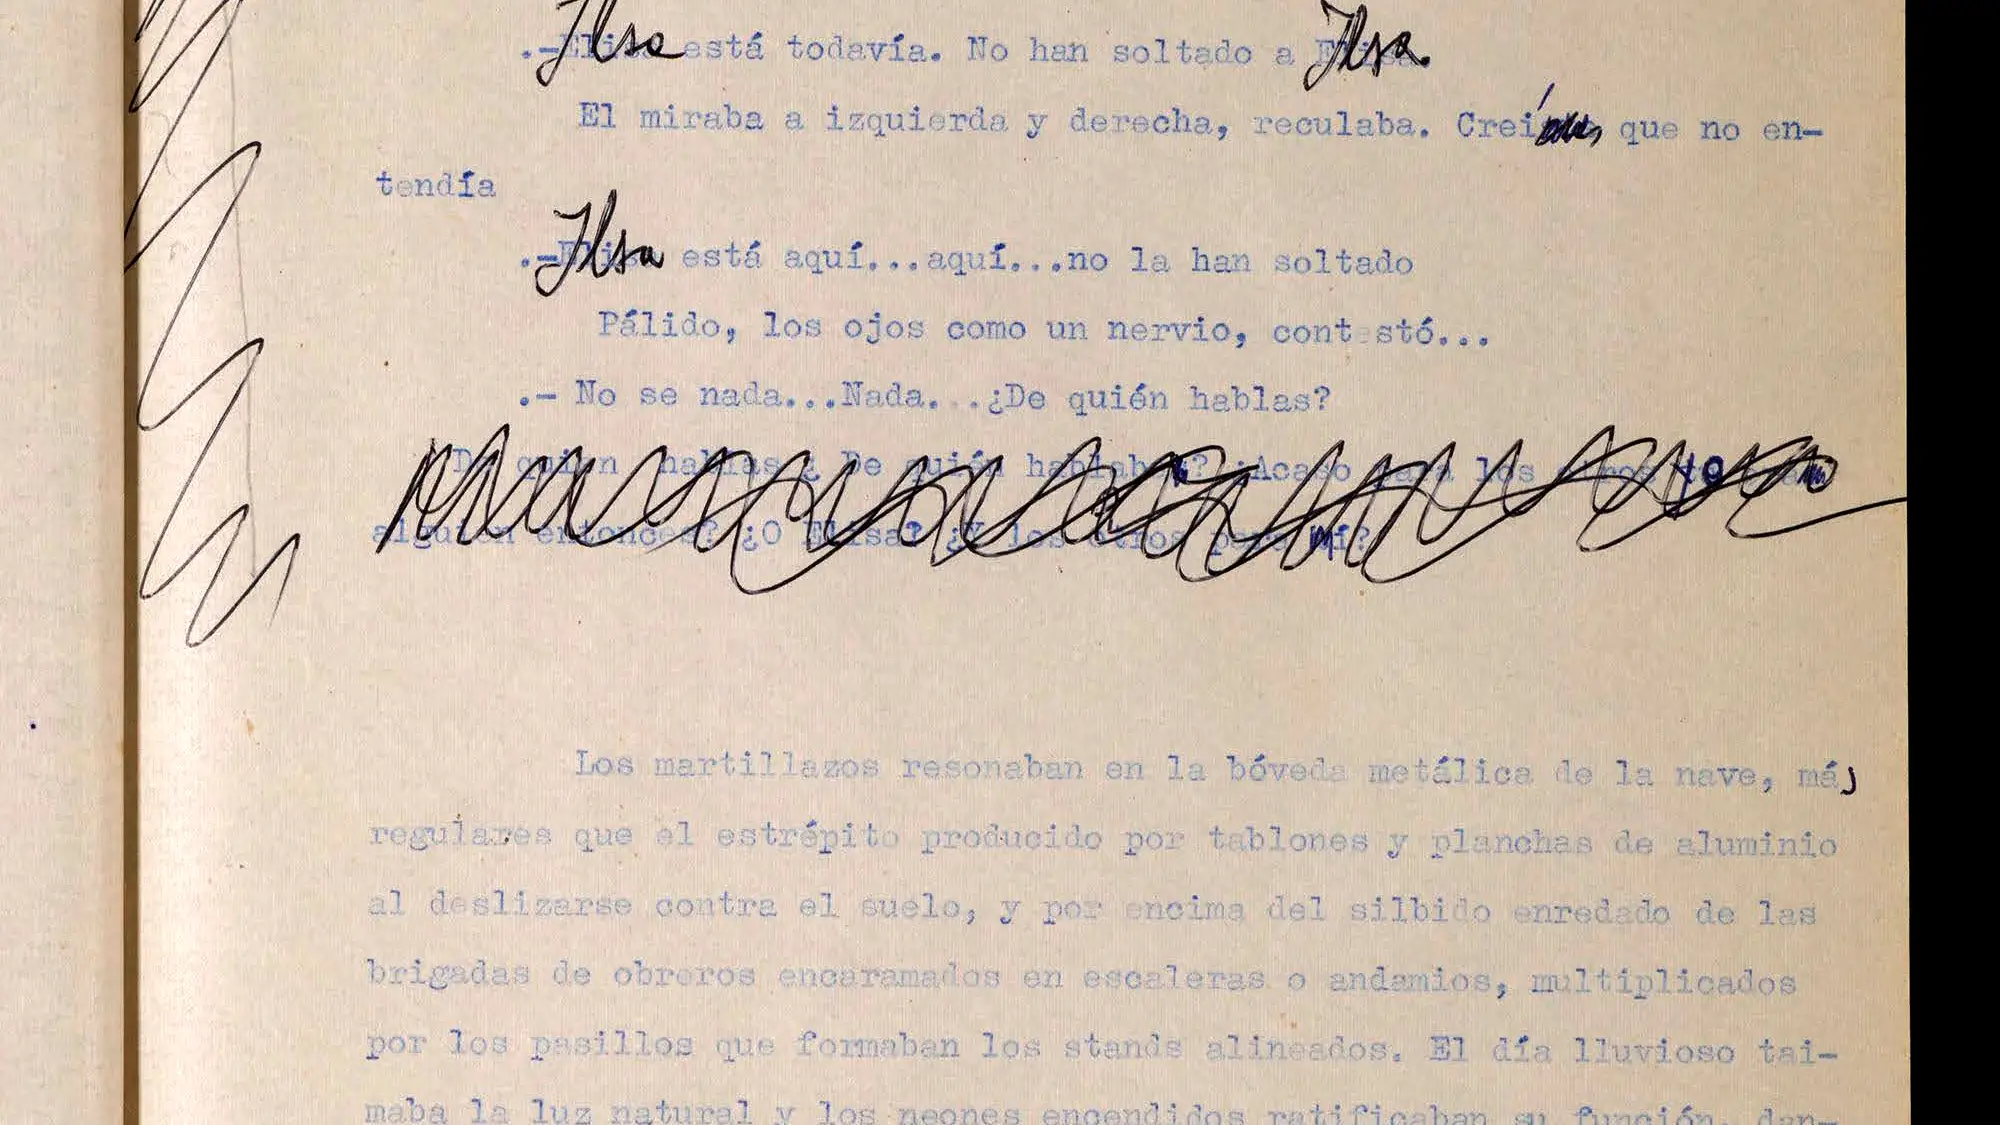 .-Ilsa está todavía. No han soltado a Ilsa.
El miraba a izquierda y derecha, reculaba. Creí, que no en-
tendía
.-Ilsa está aquí...aquí...no la han soltado
Pálido, los ojos como un nervio, contestó...
.- No se nada...Nada...¿De quién hablas?
hablas De quién ¿Acaso para los
alguien entonces? ¿O Elisa? ¿Y los otros para mí?
Los martillazos resonaban en la bóveda metálica de la nave, más
regulares que el estrépito producido por tablones y planchas de aluminio
al deslizarse contra el suelo, y por encima del silbido enredado de las
brigadas de obreros encaramados en escaleras o andamios, multiplicados
por los pasillos que formaban los stands alineados. El día lluvioso tai-
maba la luz natural y los neones encendidos ratificaban su función, dan-